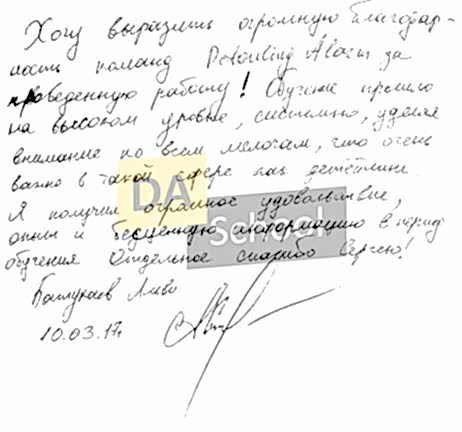 Хочу выразить огромную благодар-
ность команд Detailing Алатис за
проведенную работу! Обучение прошло
на высоком уровне, системно, уделяя
внимание по всем мелочам, что очень
важно в такой сфере как детейлинг.
Я получил огромное удовольствие,
опыт и бесценную информацию в период
обучения Отдельное спасибо Сергею!
10.03.17г
DA
School